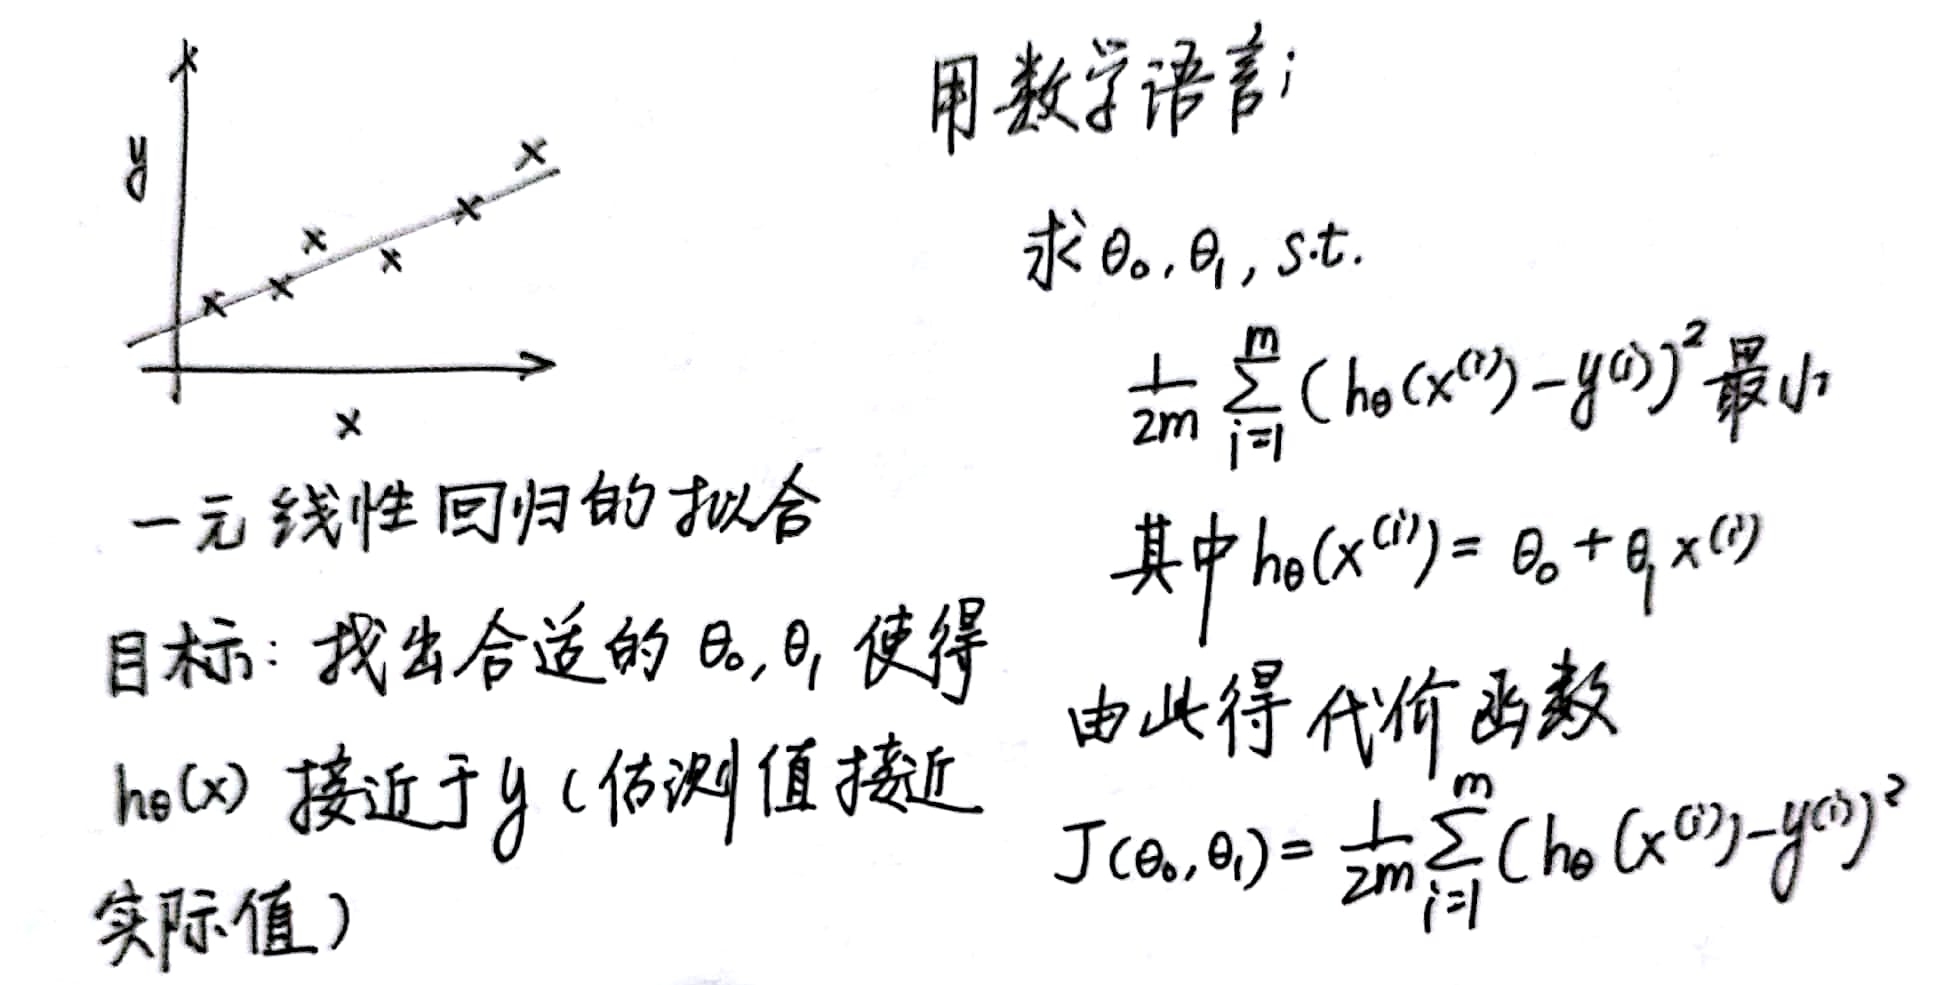 y
x
一元线性回归的拟合
目标: 找出合适的 θ₀, θ₁ 使得
hθ(x) 接近于 y (估测值接近
实际值)
用数学语言;
求 θ₀, θ₁, s.t.
1/2m ∑ᵢ₌₁ᵐ (hθ(x⁽ⁱ⁾) - y⁽ⁱ⁾)² 最小
其中 hθ(x⁽ⁱ⁾) = θ₀ + θ₁x⁽ⁱ⁾
由此得 代价函数
J(θ₀, θ₁) = 1/2m ∑ᵢ₌₁ᵐ (hθ(x⁽ⁱ⁾) - y⁽ⁱ⁾)²